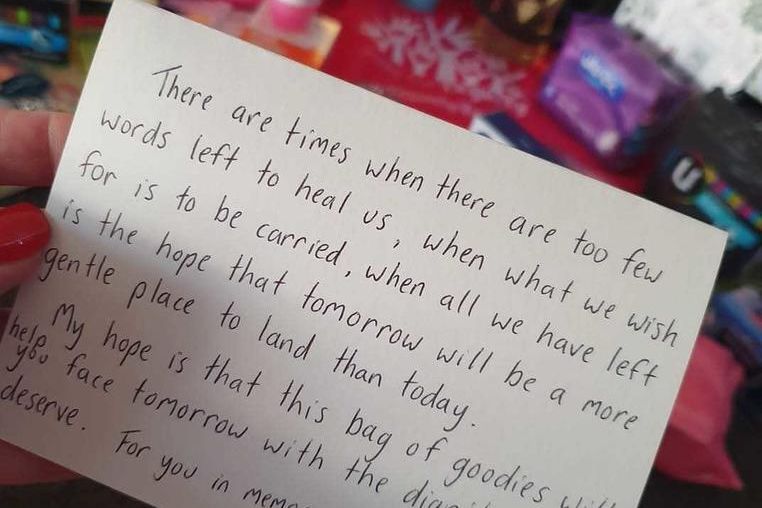 There are times when there are too few
words left to heal us, when what we wish
for is to be carried, when all we have left
is the hope that tomorrow will be a more
gentle place to land than today.
My hope is that this bag of goodies
help you face tomorrow with the
deserve. For you in
U